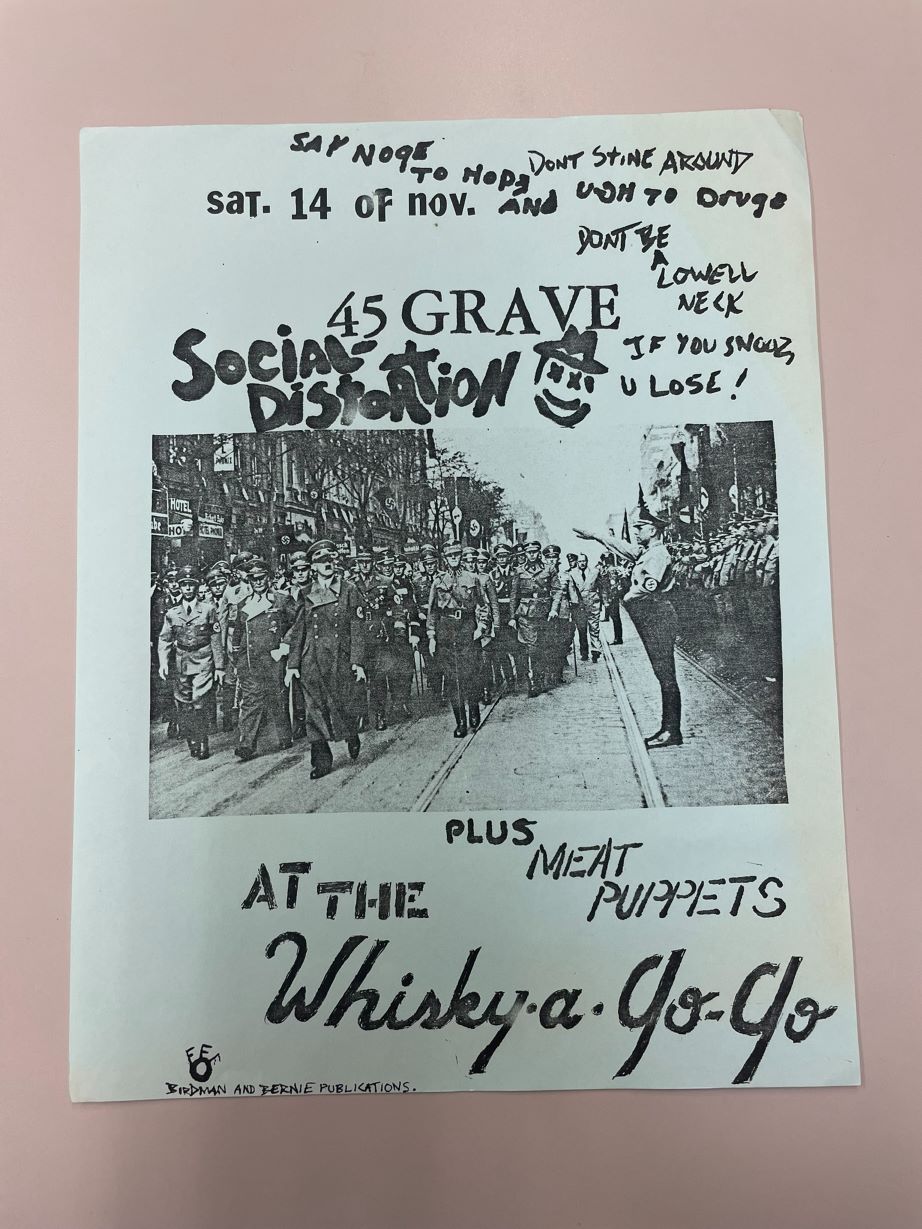 SAY NOPE
TO HOPE DONT STINE AROUND
AND UGH TO Drugs
sat. 14 of nov.
DONT BE
A
LOWELL
NECK
45 GRAVE
SOCIAL
DISTORTION
IF YOU SNOOZ,
U LOSE!
HOTEL
PLUS
MEAT
PUPPETS
AT THE
Whisky·a·Go-Go
BIRDMAN AND BERNIE PUBLICATIONS.